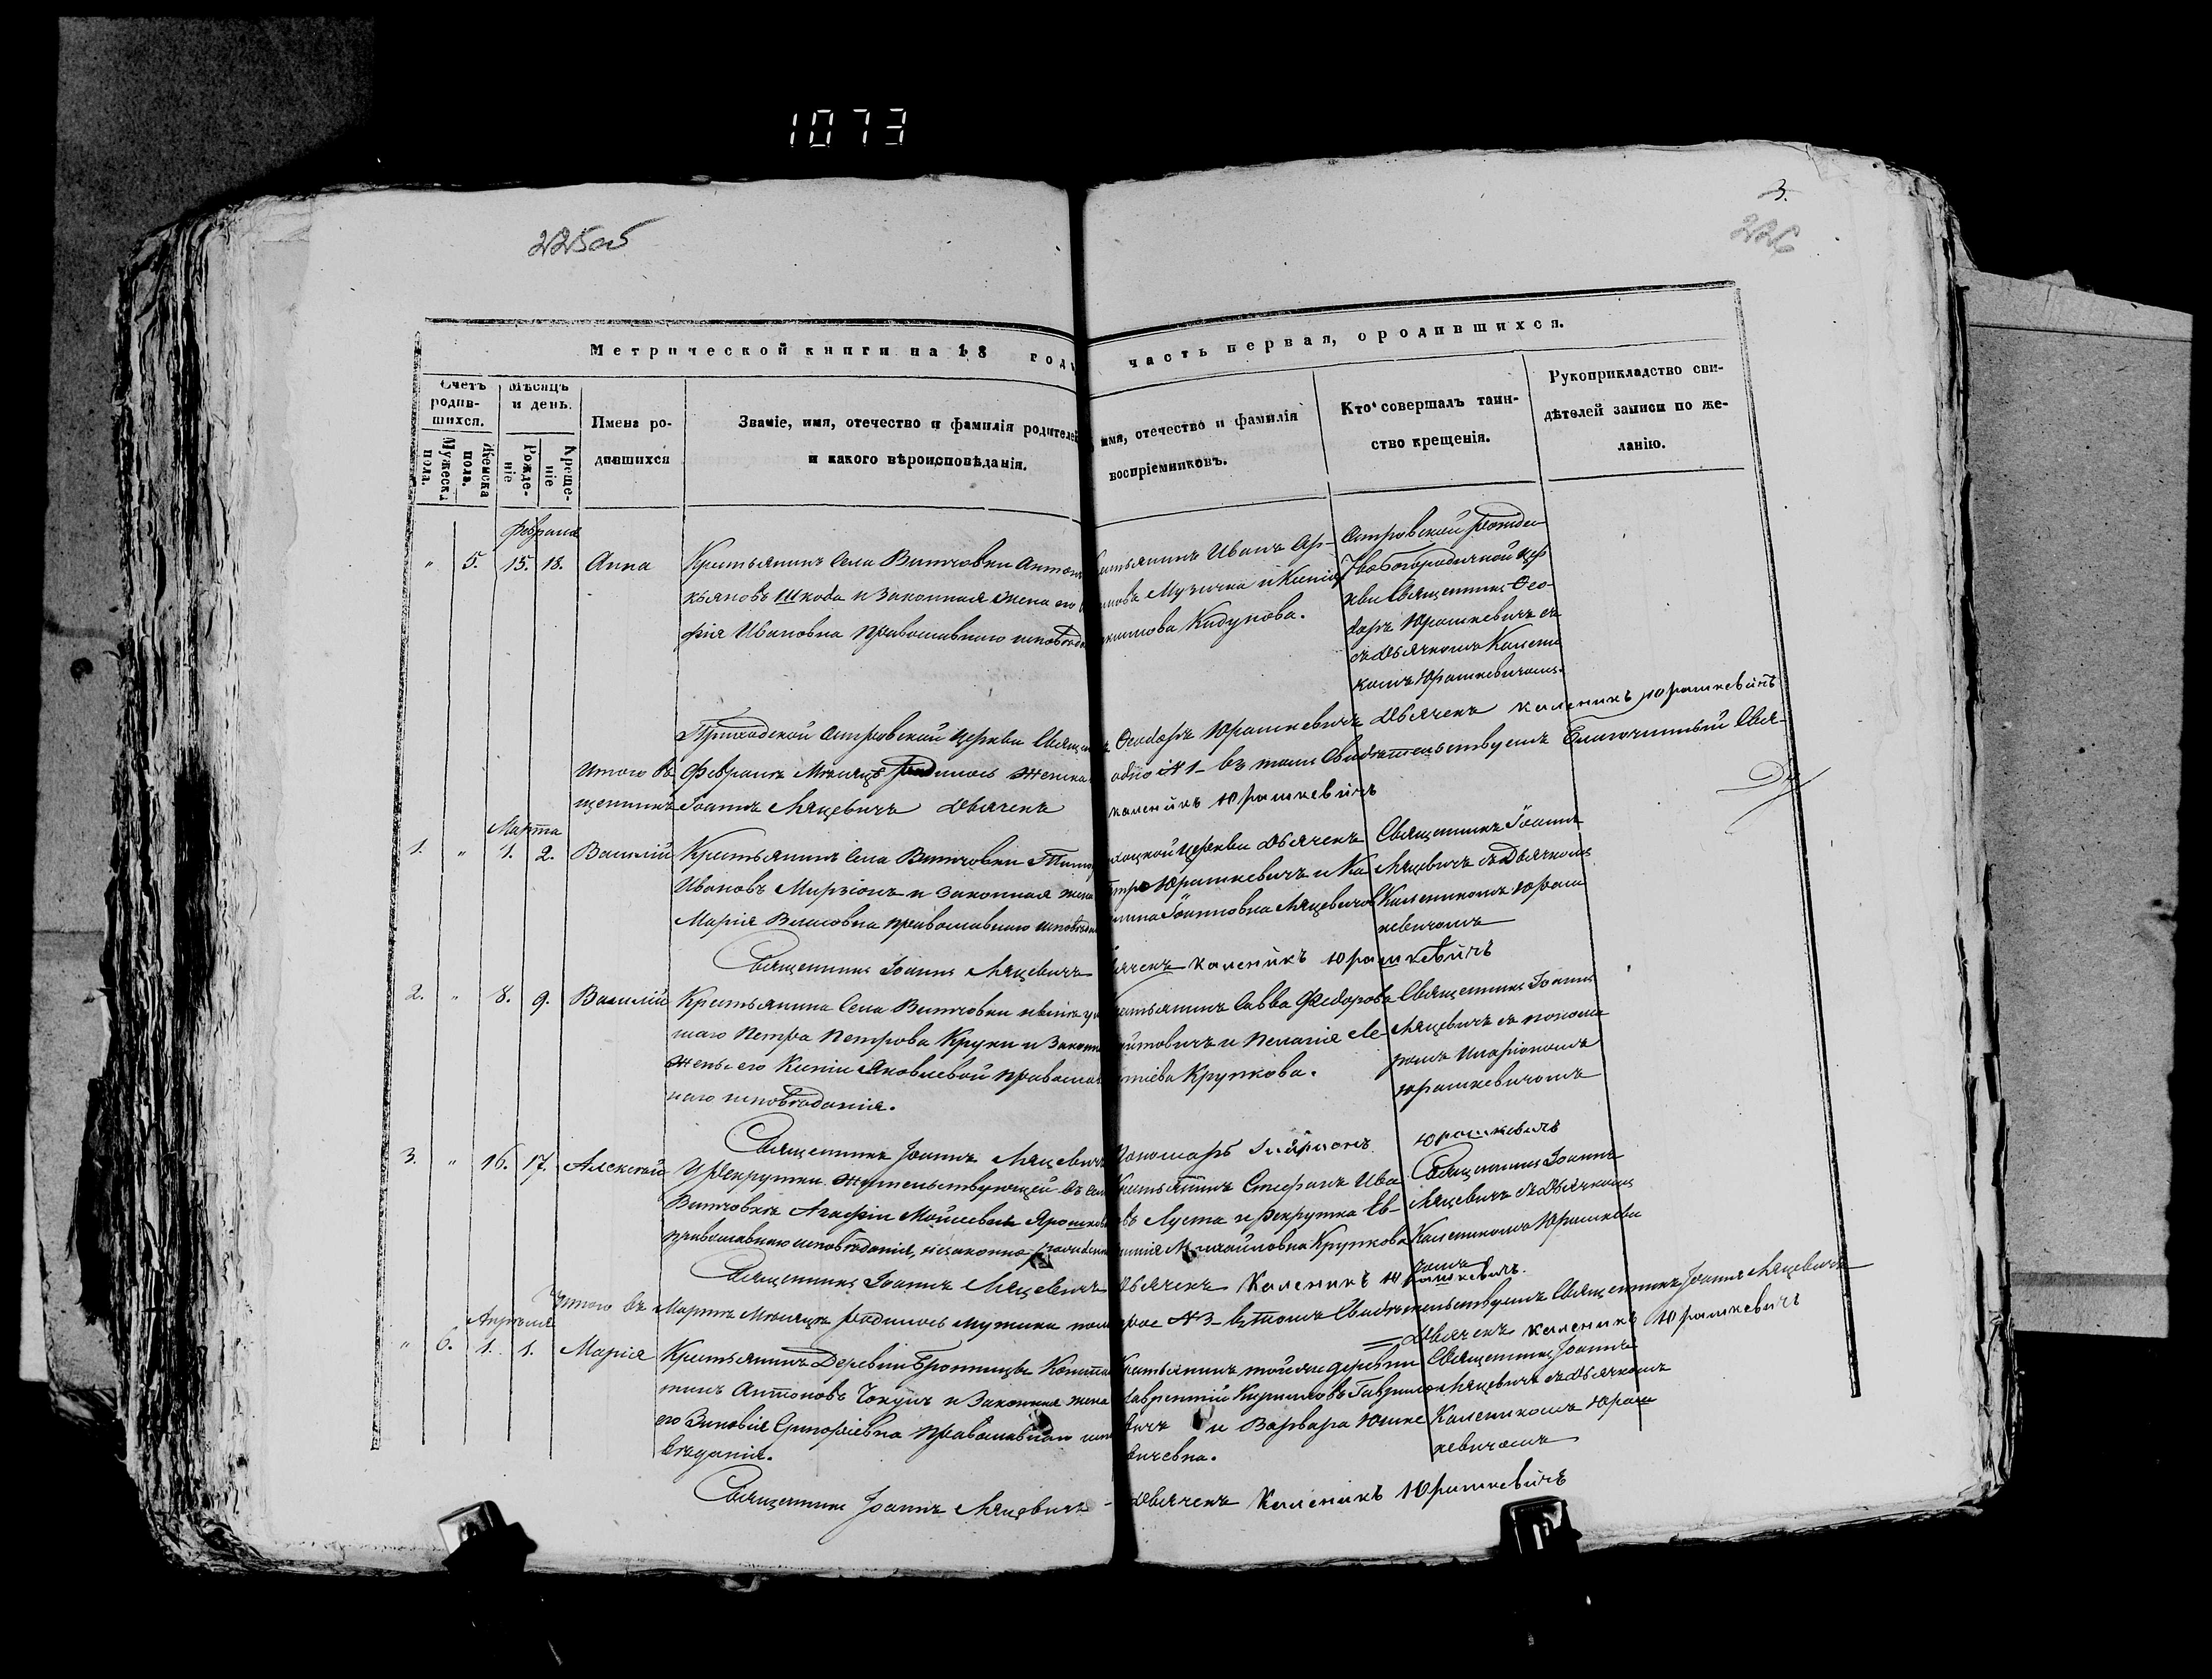 1073
225об
3.
226
Метрической книги на 18 годъ часть первая, о родившихся.
Счетъ родив-
шихся.
Мужеска пола.
Женска пола.
Мѣсяцъ и день.
Рожде-
ніе
Креще-
ніе
Имена ро-
дившихся
Званіе, имя, отечество и фамилія родителей
и какого вѣроисповѣданія.
имя, отечество и фамилія
воспріемниковъ.
Кто совершалъ таин-
ство крещенія.
Рукоприкладство сви-
дѣтелей записи по же-
ланію.
Февраля
" 5. 15. 18. Анна
Крестьянинъ Села Витчовки Антонъ
кьяновъ Шкода и Законная Жена его
фія Ивановна Православнаго исповѣда
стьянинъ Иванъ
новъ Музычка и Ксенія
Кидунова.
Островской Рожде
ствоБогородичной Цер
кви Священникъ Ѳео-
доръ Юрашкевичъ съ
съ Дьячкомъ Калени
комъ Юрашкевичомъ.
Приходской Островской Церкви Свящ Ѳеодоръ Юрашкевичъ Дьячекъ Каленикъ Юрашкевичъ
Итого въ Февралѣ Мѣсяцѣ Родилось женска одно № 1 – въ томъ Свидѣтельствуемъ Благочинный Свя-
щенникъ Іоаннъ Мацевичъ Дьячекъ Каленикъ Юрашкевичъ
Марта
1. " 1. 2. Василій
Крестьянинъ Села Витчовки
Ивановъ Мирзіонъ и Законная жена
Марія Власовна Православнаго исповѣда
Церкви Дьячекъ
Юрашкевичъ и Ка
Іоанновна Мацевичов
Священникъ Іоаннъ
Мацевичъ съ Дьячкомъ
Калеником Юраш
кевичомъ
Священникъ Іоаннъ Мацевичъ Дьячекъ Каленикъ Юрашкевичъ
2. " 8. 9. Василій
Крестьянина Села Витчовки
шаго Петра Петрова Круки и Законно
жены его Ксеніи Яковлевой Православ
наго исповѣданія.
стьянинъ Савва Федоровъ
и Пелагія
Крупкова.
Священникъ Іоаннъ
Мацевичъ съ понома
ремъ Иларіономъ
Юрашкевичомъ
Священникъ Іоаннъ Мацевичъ Пономарь Иларіонъ Юрашкевичъ
3. " 16. 17. Алексѣй
У Рекрутки жительствующей въ селѣ
Витчовкѣ Агафіи Мойсеевой Ярошков
православнаго исповѣданія, незаконно рожденн
Крестьянинъ Стефанъ Ива
овъ Луста и рекрутка Ев-
Михайловна Крупкова
Священникъ Іоаннъ
Мацевичъ съ Дьячкомъ
Каленикомъ Юрашкеви
чомъ
Священникъ Іоаннъ Мацевичъ Дьячекъ Каленикъ Юрашкевичъ.
Итого въ Мартѣ Мѣсяцѣ родилось мужеска пола трое № 3 – въ томъ Свидѣтельствуемъ Священникъ Іоаннъ Мацевичъ
Дьячекъ Каленикъ Юрашкевичъ
Апрѣля
" 6. 1. 1. Марія
Крестьянинъ Деревни Бронницы Конста
тинъ Антоновъ и Законная жена
его Зиновія Православнаго испо
вѣданія.
Крестьянинъ той же деревни
Лаврентій Кирилловъ Гаврило
вичъ и Варвара Юшке
вичевна.
Священникъ Іоаннъ
Мацевичъ съ Дьячкомъ
Каленикомъ Юраш
кевичомъ
Священникъ Іоаннъ Мацевичъ – Дьячекъ Каленикъ Юрашкевичъ